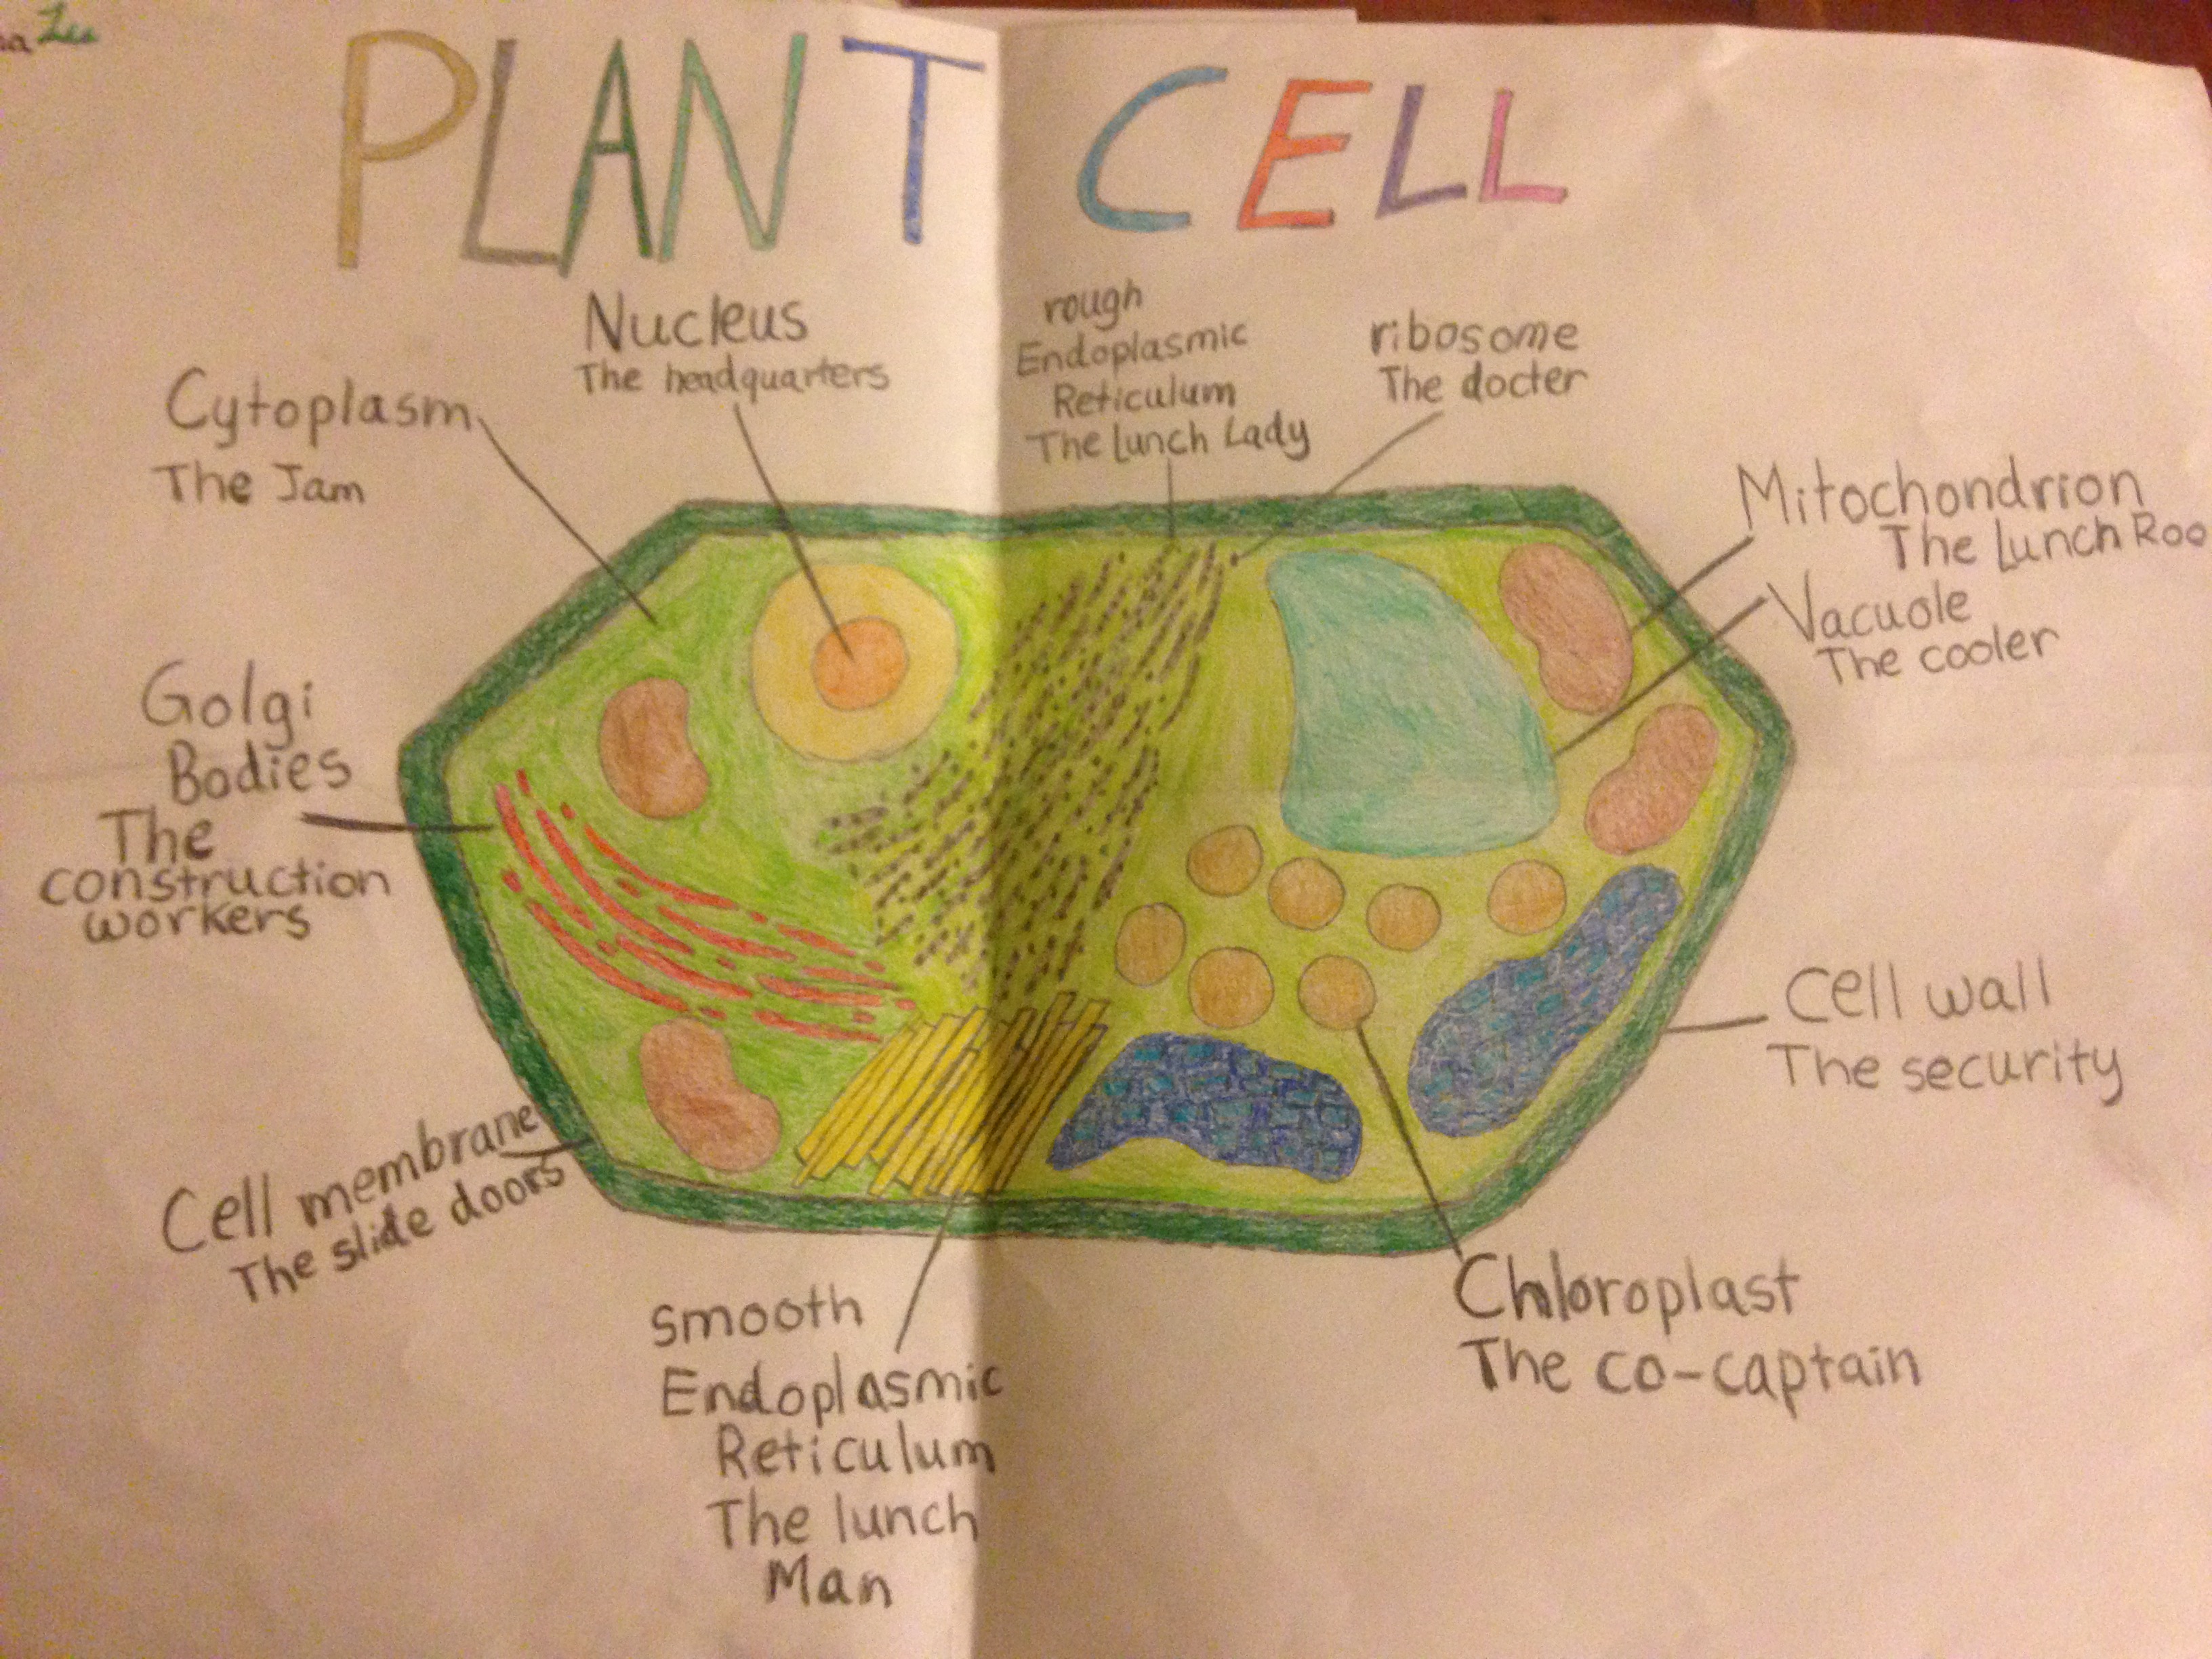 PLANT CELL
Nucleus
The headquarters
rough
Endoplasmic
Reticulum
The Lunch Lady
ribosome
The docter
Cytoplasm
The Jam
Mitochondrion
The Lunch Roo
Vacuole
The cooler
Golgi
Bodies
The
construction
workers
Cell wall
The security
Cell membrane
The slide doors
Chloroplast
The co-captain
smooth
Endoplasmic
Reticulum
The lunch
Man